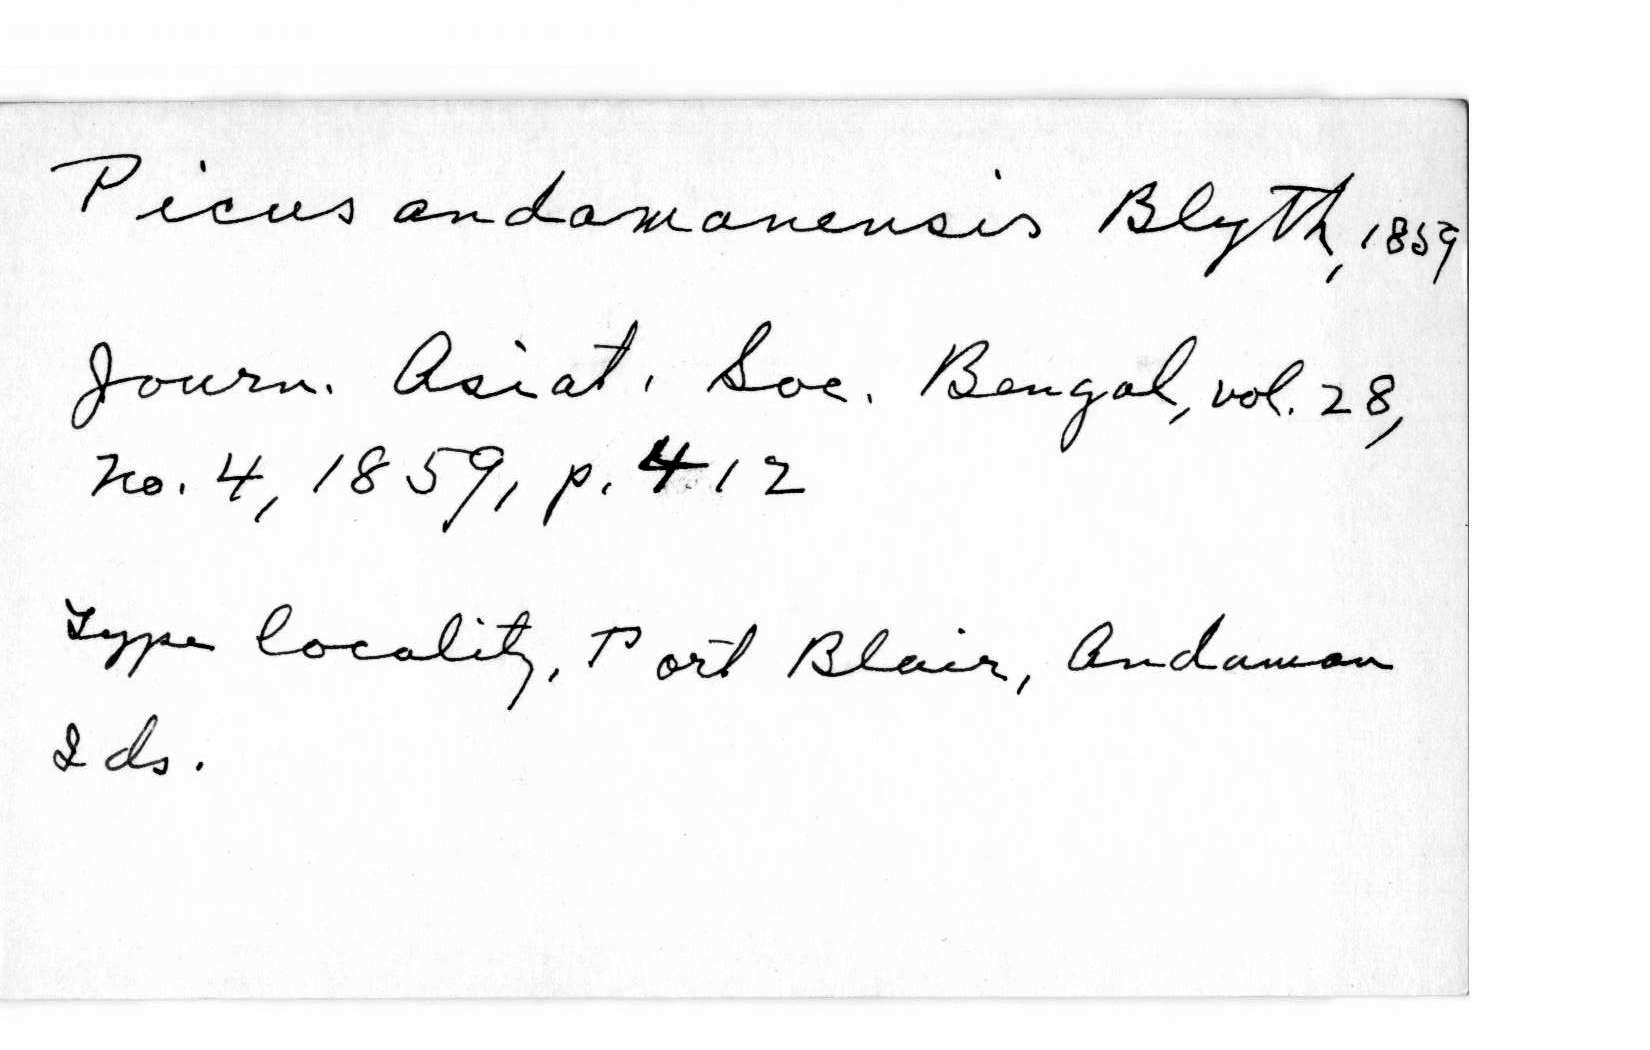 Picus andamanensis Blyth, 1859
Journ. Asiat. Soc. Bengal, vol. 28,
no. 4, 1859, p. 412
Type locality, Port Blair, Andaman
Ids.